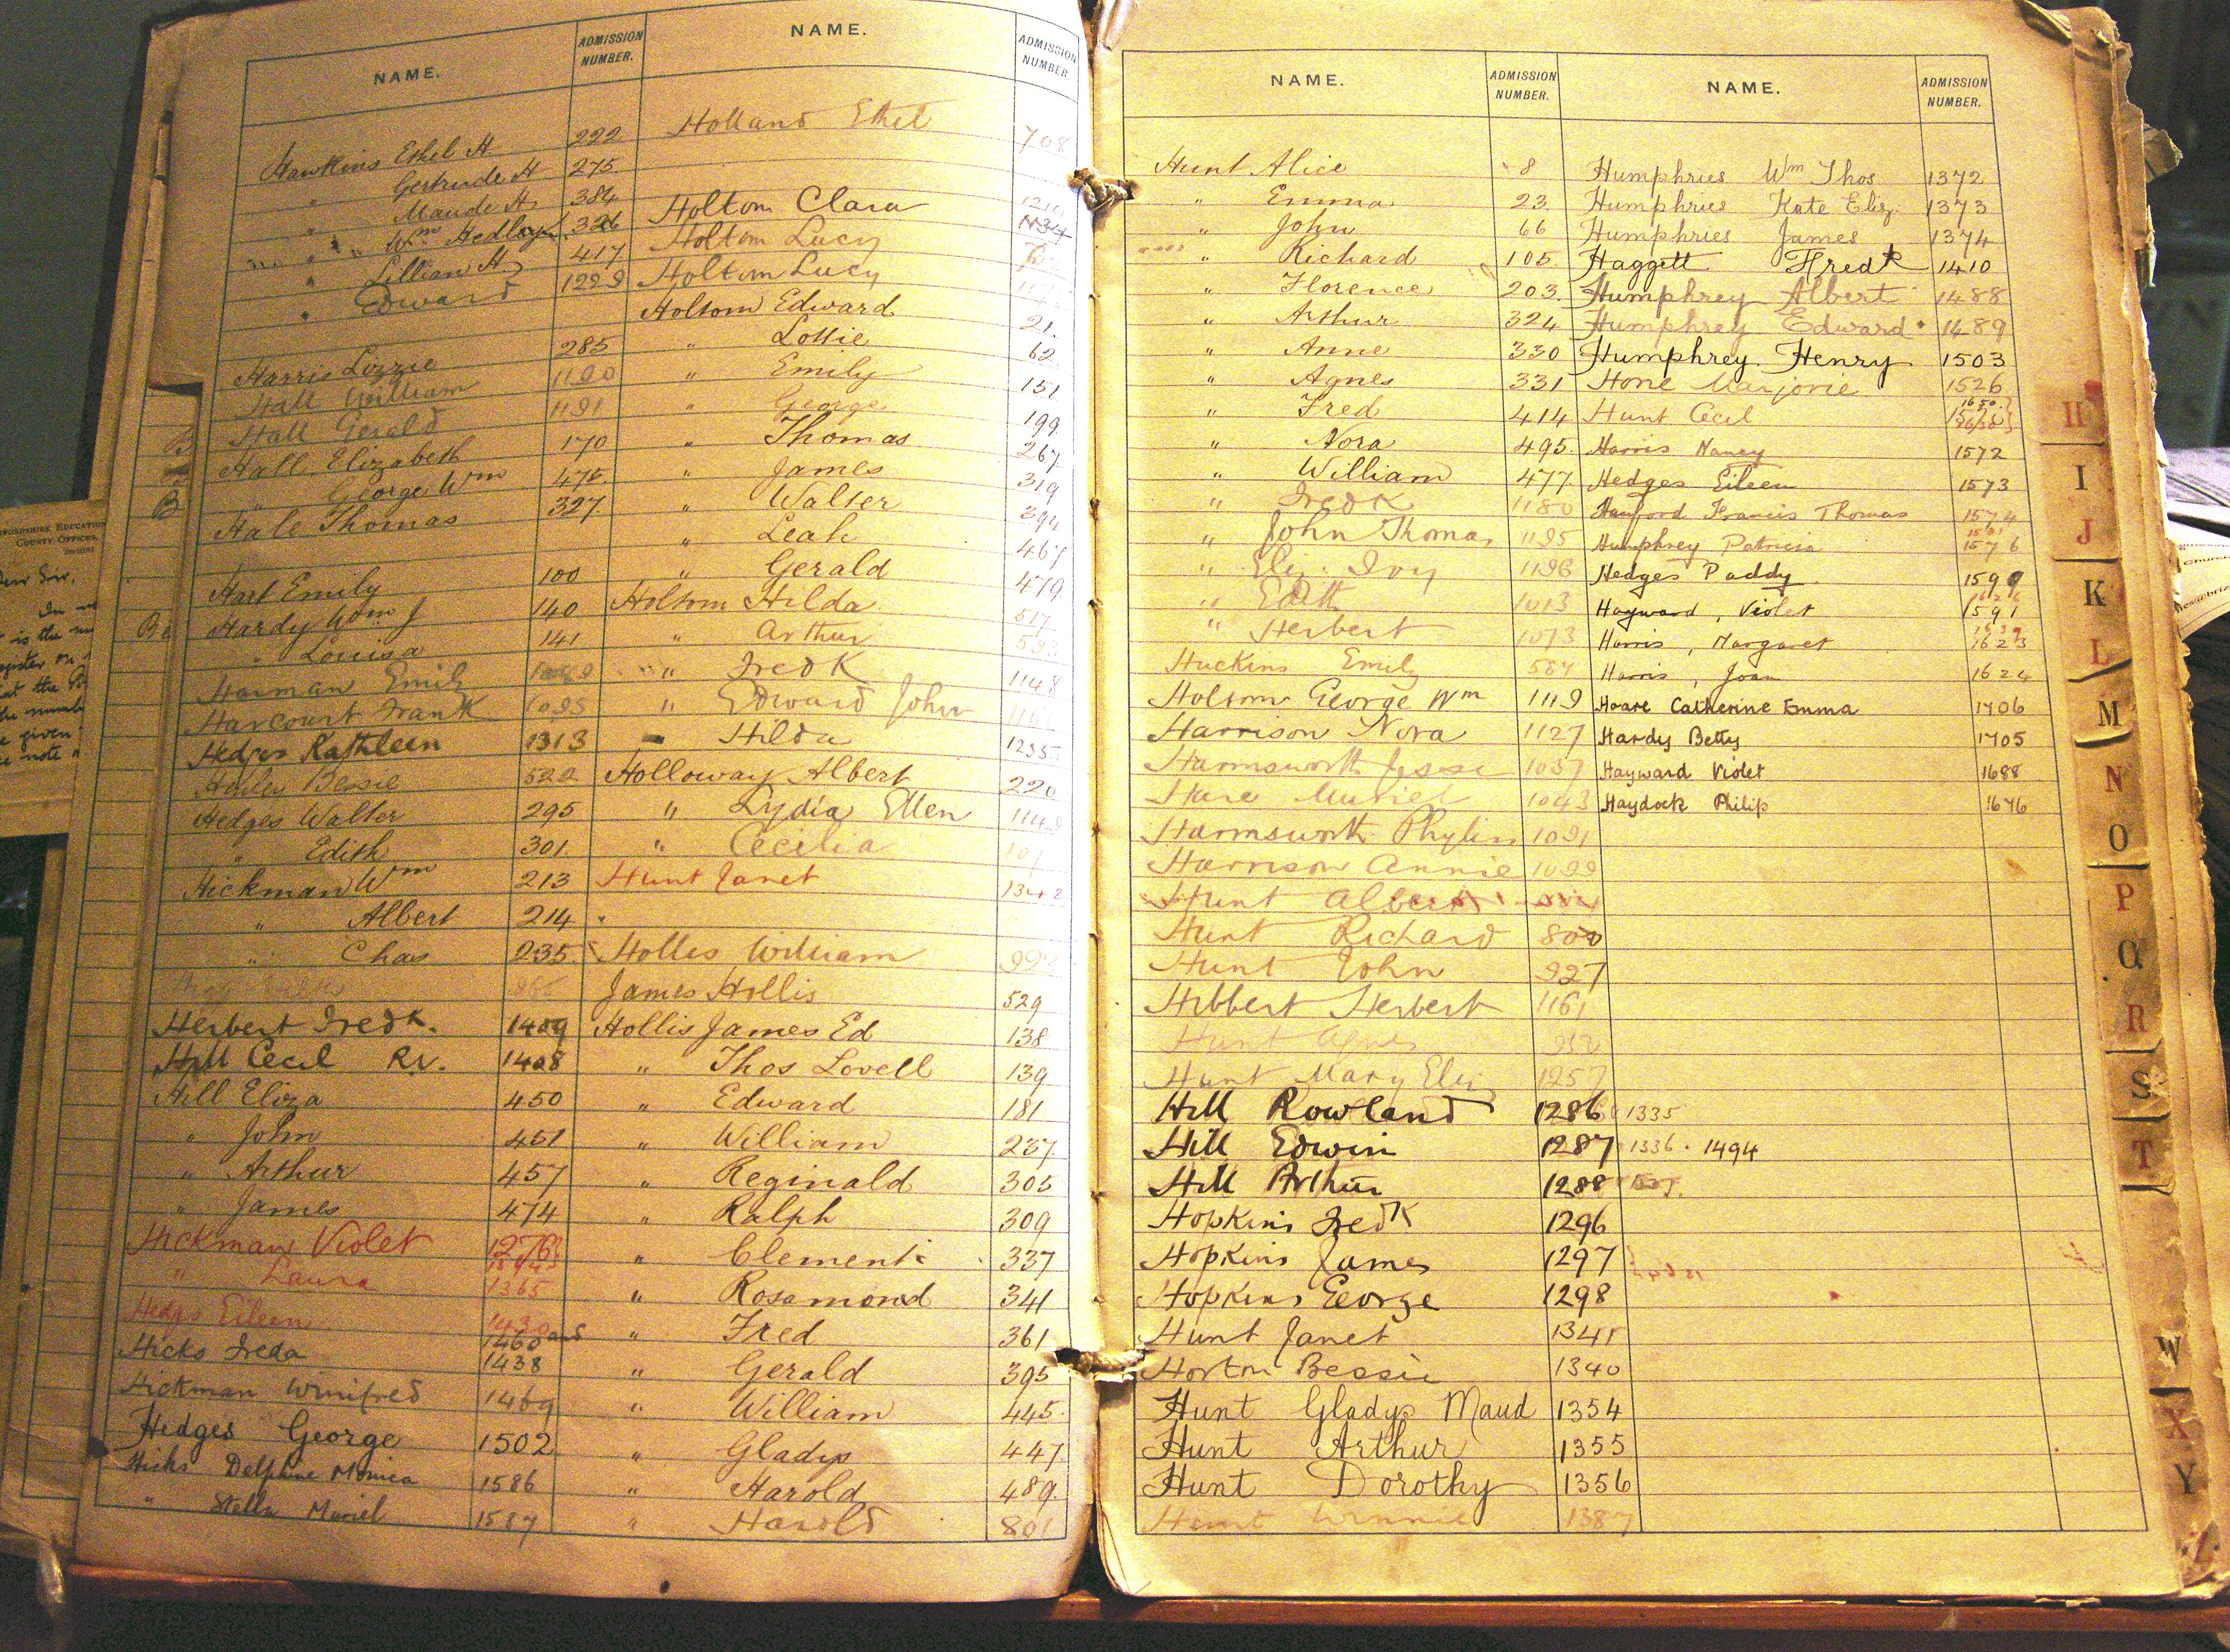 NAME.
ADMISSION NUMBER.
Hawkins Ethel H 222
" Gertrude H 275.
" Maude H. 384
" Wm Hedley 326
" Lillian H 417
" Edward 1229
Harris Lizzie 285
Hall William 1190
Hall Gerald 1191
Hall Elizabeth 170
" George Wm 475.
Hale Thomas 327
Hart Emily 100
Hardy Wm J 140
" Louisa 141
Harman Emily
Harcourt Frank 1095
Hedges Kathleen 1313
Bessie 522
Hedges Walter 295
" Edith 301.
Hickman Wm 213
" Albert 214
" Chas 235.
Herbert Fredk. 1409
Hill Cecil Rd. 1408
Hill Eliza 450
" John 451
" Arthur 457
" James 474
Hickman Violet 1276
" Laura 1365
Hedges Eileen 1430
1460 and
Hicks Freda 1438
Hickman Winifred 1469
Hedges George 1502
Hicks Delphine Monica 1586
" Stella Muriel 1587
NAME.
ADMISSION NUMBER.
Holland Ethel 708
Holtom Clara
Holtom Lucy
Holtom Lucy
Holtom Edward 21.
" Lottie 62
" Emily 151
" George 199
" Thomas 267
" James 319
" Walter 394
" Leah 467
" Gerald 479
Holtom Hilda 517
" Arthur 593
" Fredk 1148
" Edward John
" Hilda 1235
Holloway Albert 220
" Lydia Ellen 1149
" Cecilia
Hunt Janet 1342
Hollis William 992
James Hollis 529
Hollis James Ed 138
" Thos Lovell 139
" Edward 181
" William 237.
" Reginald 305
" Ralph 309
" Clement 337
" Rosamond 341
" Fred 361
" Gerald 395
" William 445.
" Gladys 447
" Harold 489.
" Harold 801
NAME.
ADMISSION NUMBER.
Hunt Alice 8
" Emma 23
" John 66
" Richard 105.
" Florence 203.
" Arthur 324
" Anne 330
" Agnes 331
" Fred 414
" Nora 495.
" William 477
" Fredk 1180
" John Thomas 1195
" Eliz. Ivy 1196
" Edith 1013
" Herbert 1073
Huckins Emily 587
Holtom George Wm 1119
Harrison Nora 1127
Harmsworth Jesse 1037
Hare Muriel 1043
Harmsworth Phyllis 1091
Harrison Annie 1099
Hunt Albert
Hunt Richard 800
Hunt John 927
Hibbert Herbert 1161
Hunt Agnes
Hunt Mary Eliz 1257
Hill Rowland 1286 1335
Hill Edwin 1287 1336 . 1494
Hill Arthur 1288
Hopkins Fredk 1296
Hopkins James 1297
Hopkins George 1298
Hunt Janet 1341
Horton Bessie 1340
Hunt Gladys Maud 1354
Hunt Arthur 1355
Hunt Dorothy 1356
Hunt Winnie 1387
NAME.
ADMISSION NUMBER.
Humphries Wm Thos 1372
Humphries Kate Eliz. 1373
Humphries James 1374
Haggett Fredk 1410
Humphrey Albert 1488
Humphrey Edward 1489
Humphrey Henry 1503
Hone Marjorie 1526
Hunt Cecil
Harris Nancy 1572
Hedges Eileen 1573
Hanford Francis Thomas 1574
Humphrey Patricia 1576
Hedges Paddy 1590
Hayward, Violet 1591
Harris, Margaret 1623
Harris, Joan 1624
Hoare Catherine Emma 1706
Hardy Betty 1705
Hayward Violet 1688
Haydock Philip 1676
H
I
J
K
L
M
N
O
P
Q
R
S
T
W
X
Y
Z
EDUCATION
COUNTY OFFICES,
Dear Sir,